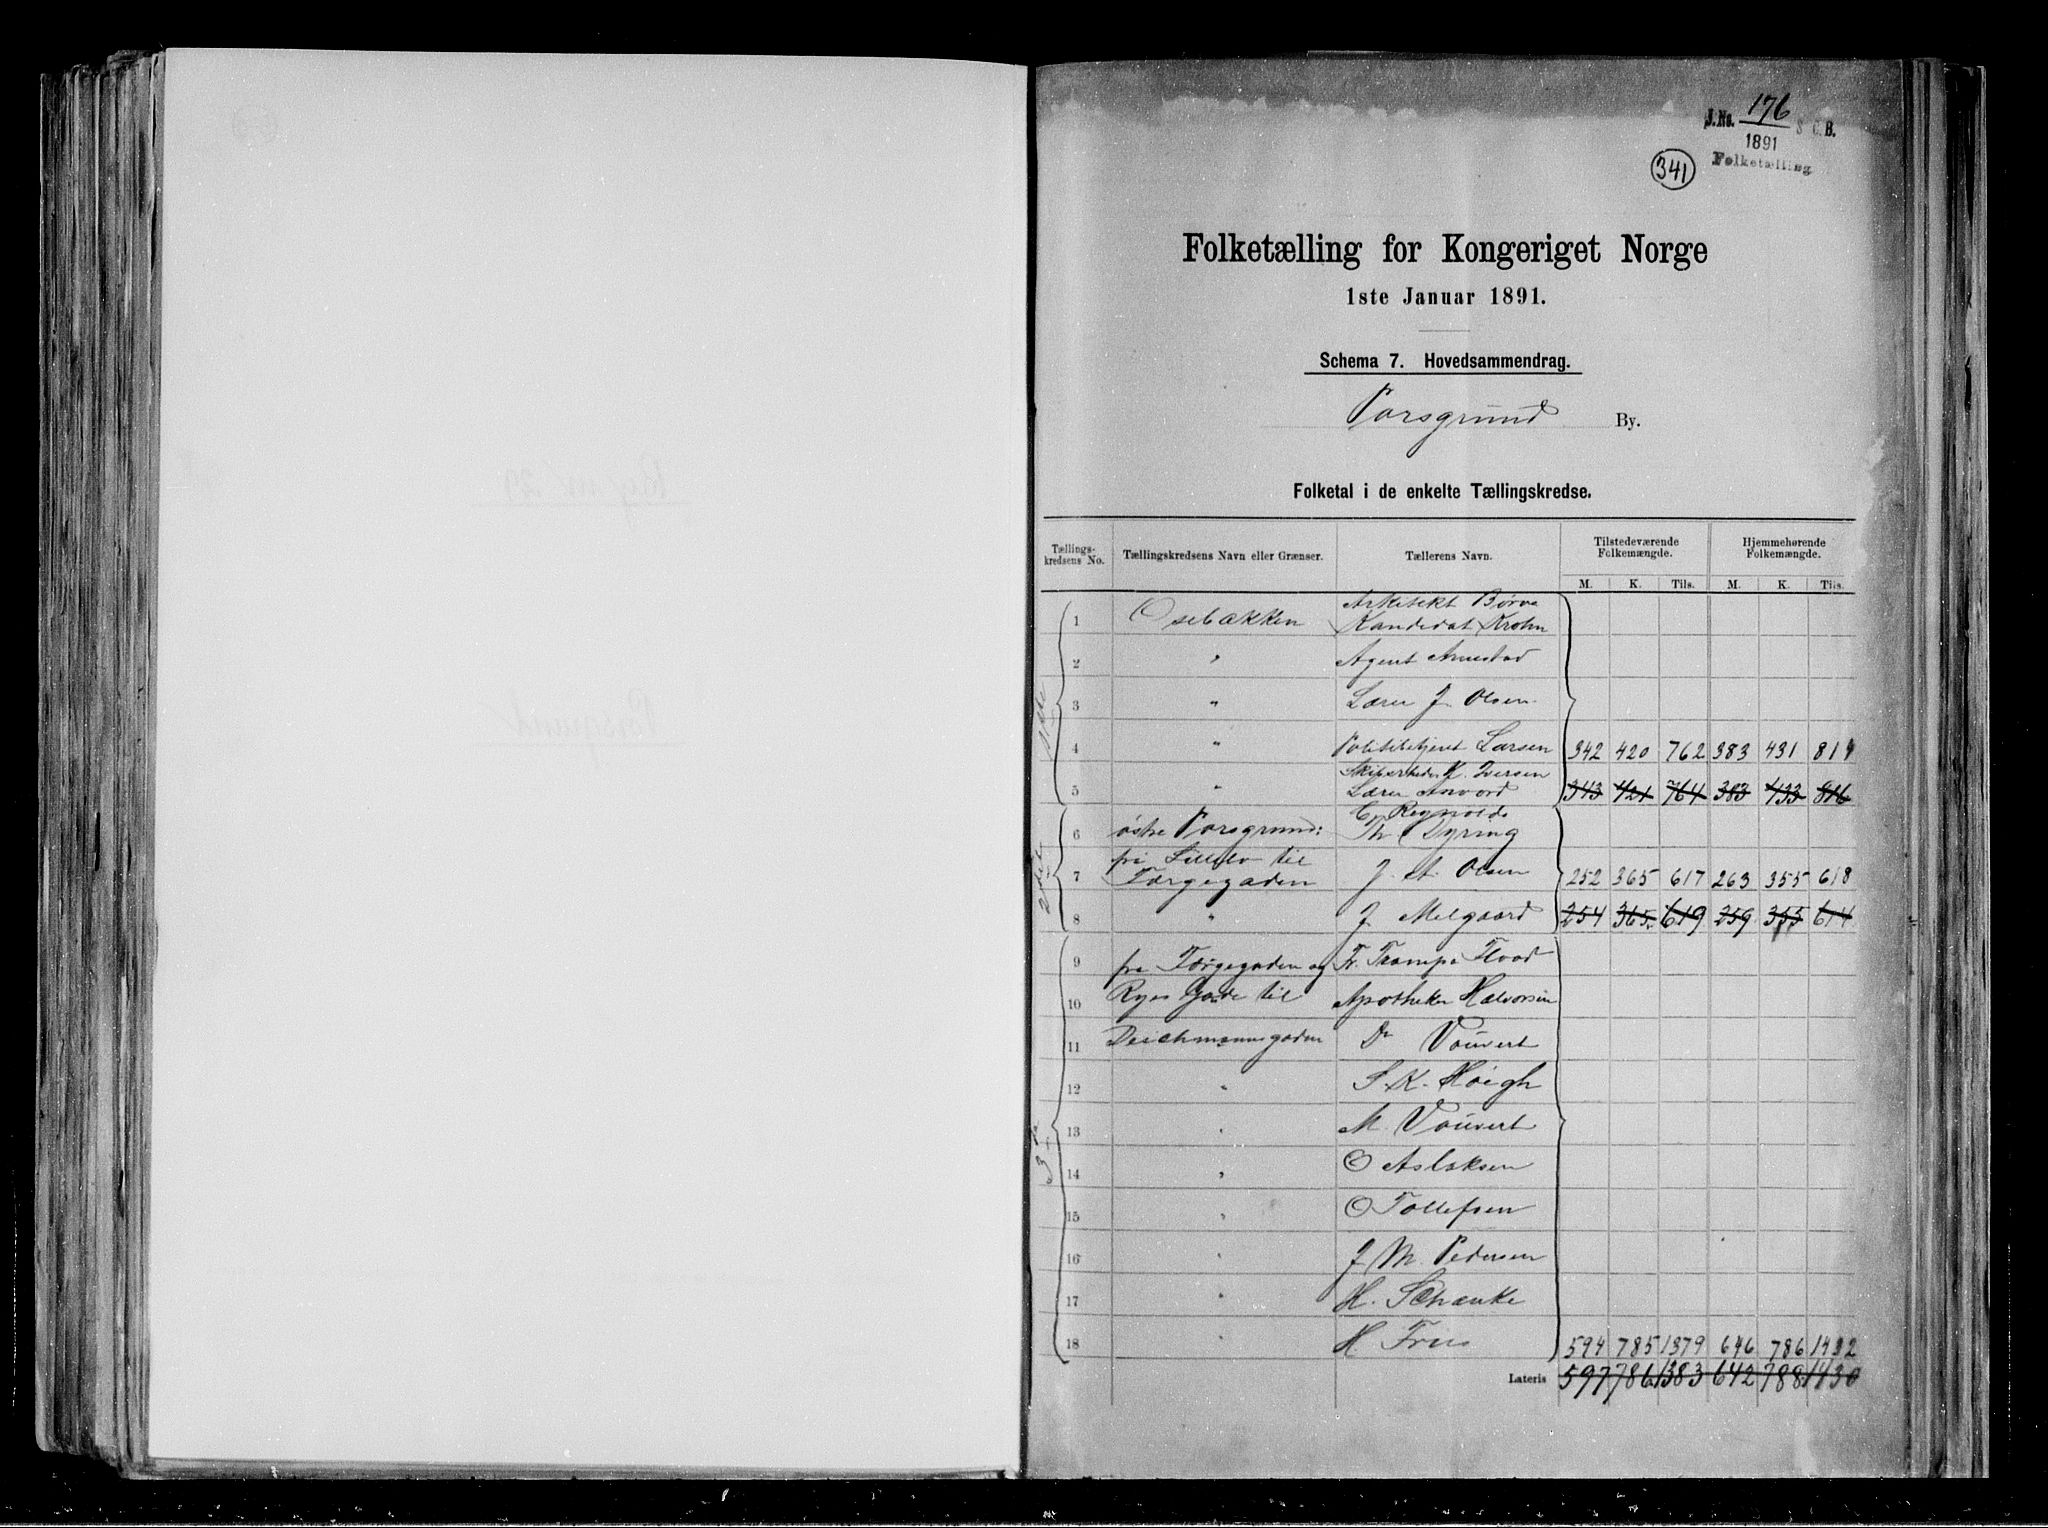 J.No. 176 S C. B.
1891
Folketælling
341
Folketælling for Kongeriget Norge
1ste Januar 1891.
Schema 7. Hovedsammendrag.
Porsgrund By.
Folketal i de enkelte Tællingskredse.
Tællings-kredsens No. Tællingskredsens Navn eller Grænser. Tællerens Navn. Tilstedeværende Folkemængde. Hjemmehørende Folkemængde.
M. K. Tils. M. K. Tils.
1 Osebakken Arkitekt Børve
Kandidat Krohn
2 " Agent
3 " Lærer J. Olsen
4 " Politibetjent Larsen 342 420 762 383 431 814
Iversen
5 " Lærer 343 421 764 383 433 816
C. Reynolds
6 østre Porsgrund: Th Dyring
fra til
7 Færgegaden J. St. Olsen 252 365 617 263 355 618
8 " J. Melgaard 254 365 619 259 355 614
9 fra Færgegaden og Fr. Trampe Flood
10 Ryes Gade til Apotheker Halvorsen
11 Deichmannsgaden Dr Vauvert
12 " S. K. Høigh
13 " M. Vauvert
14 " O Aslaksen
15 " O Tollefsen
16 " J M. Pedersen
17 " H. Schanke
18 " H Friis 594 785 1379 646 786 1432
Lateris 597 786 1383 642 788 1430